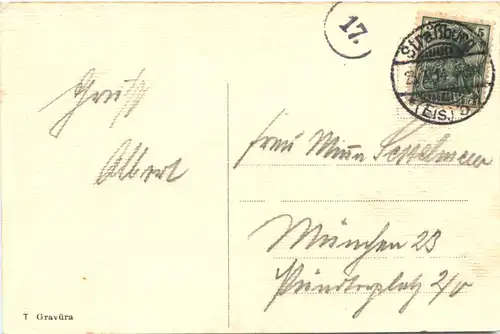 17.
Straßburg
5
(Els.)
Gruß
Albert
Frau Minna
München 23
2/0
T Gravüra